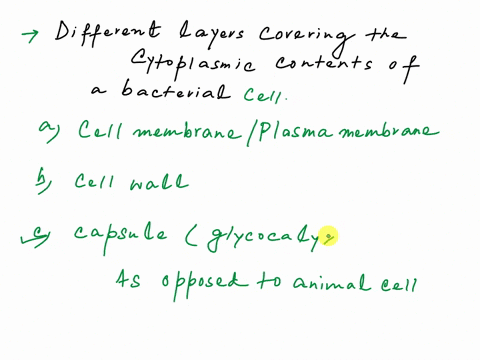 → Different layers covering the
cytoplasmic contents of
a bacterial cell.
a) Cell membrane/Plasma membrane
b) Cell wall
c) Capsule (glycocaly
As opposed to animal cell